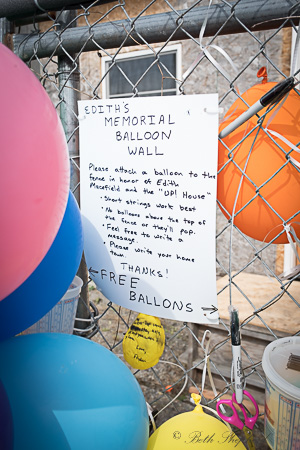 EDITH'S
MEMORIAL
BALLOON
WALL
Please attach a balloon to the
fence in honor of Edith
Macefield and the "UP! House"
• Short strings work best
• No balloons above the top of
the fence or they'll pop.
• Feel free to write a
message.
• Please write your home
town.
THANKS!
←FREE
BALLONS→
© Beth